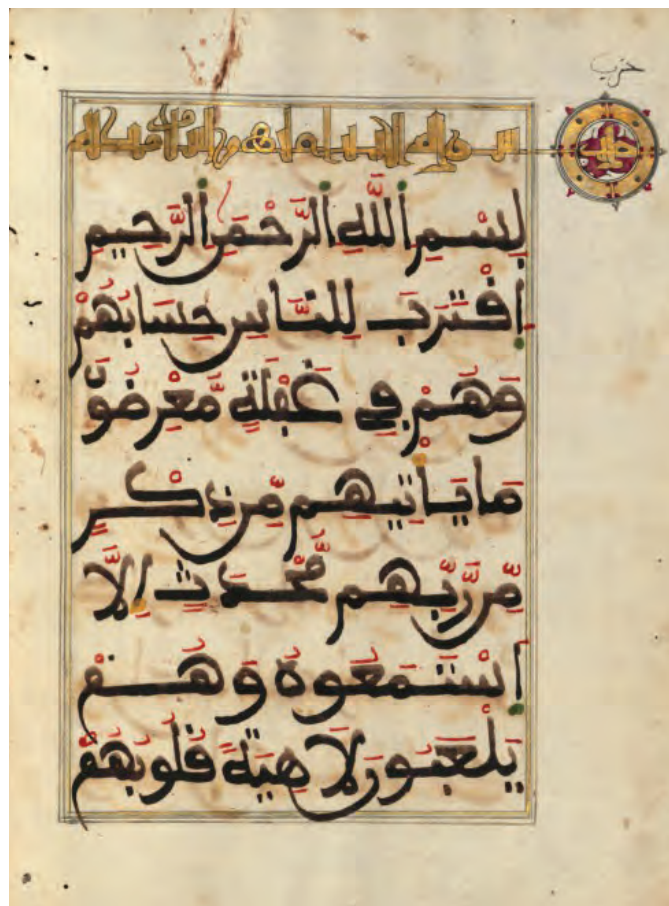 حزب
سورة الانبيا
بِسْمِ اللَّهِ الرَّحْمَنِ الرَّحِيمِ
اقْتَرَبَ لِلنَّاسِ حِسَابُهُمْ
وَهُمْ فِي غَفْلَةٍ مُّعْرِضُونَ
مَا يَأْتِيهِم مِّن ذِكْرٍ
مِّن رَّبِّهِم مُّحْدَثٍ إِلَّا
اسْتَمَعُوهُ وَهُمْ
يَلْعَبُونَ لَاهِيَةً قُلُوبُهُمْ